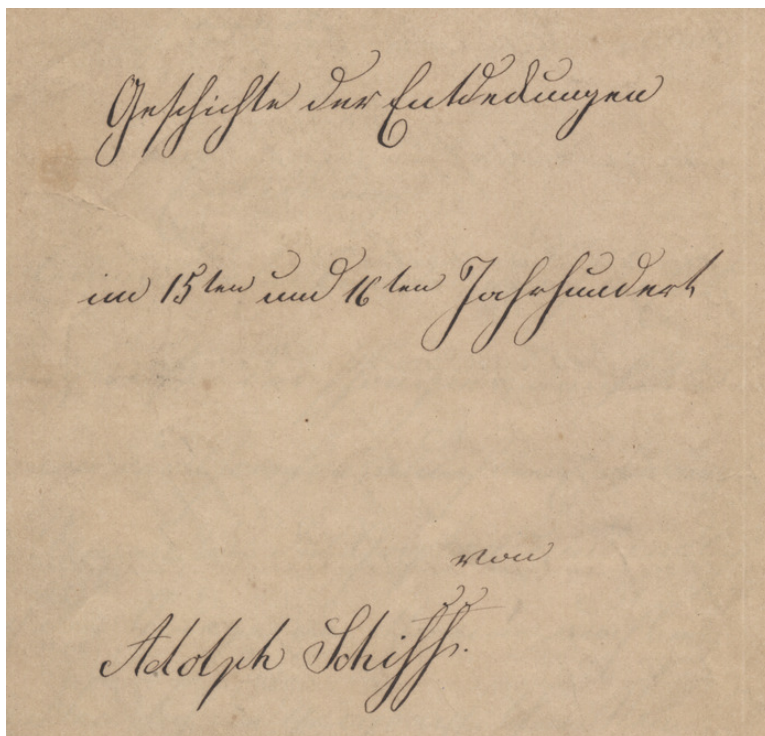 Geschichte der Entdeckungen
im 15ten und 16ten Jahrhundert
von
Adolph Schiff.